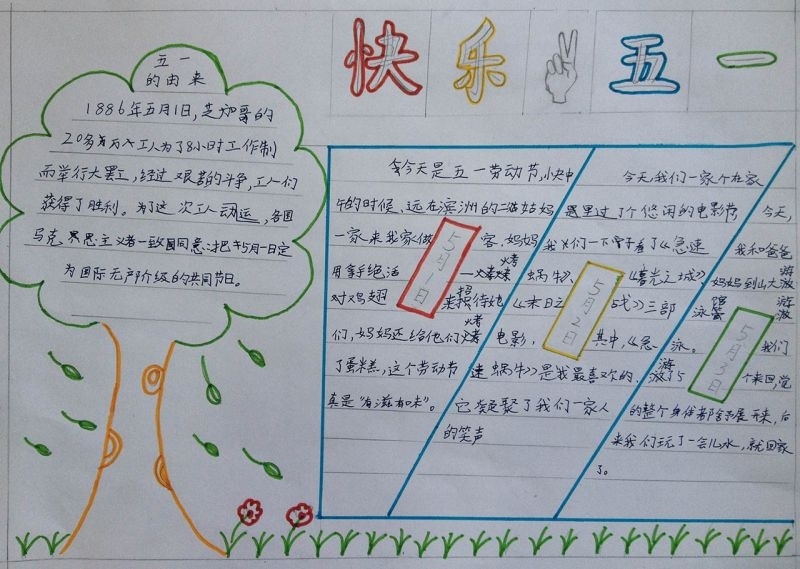 快乐五一
五一
的由来
1886年五月1日,芝加哥的
20多万工人为了8小时工作制
而举行大罢工,经过艰苦的斗争,工人们
获得了胜利。为了这次工人运动,各国
马克思主义者一致同意把5月1日定
为国际无产阶级的共同节日。
今天是五一劳动节,小中
午的时候、远在滨洲的二姑姑
一家来我家做客,妈妈
用拿手绝活—火烤
对鸡翅来招待她
们,妈妈还给他们烤
了蛋糕,这个劳动节
真是“有滋有味”。
5月1日
今天,我们一家个在家
里过了个悠闲的电影节,
我们一下子看了《急速
蜗牛》、《曙光之城》、
《末日之战》三部
电影,其中,《急
速蜗牛》是我最喜欢的,
它凝聚了我们一家人
的笑声
5月2日
今天,
我和爸爸
妈妈到山大游
泳馆游
泳。我们
游了5个来回,觉
的整个身体都舒展开来,后
来我们玩了一会儿水,就回家
了。
5月3日